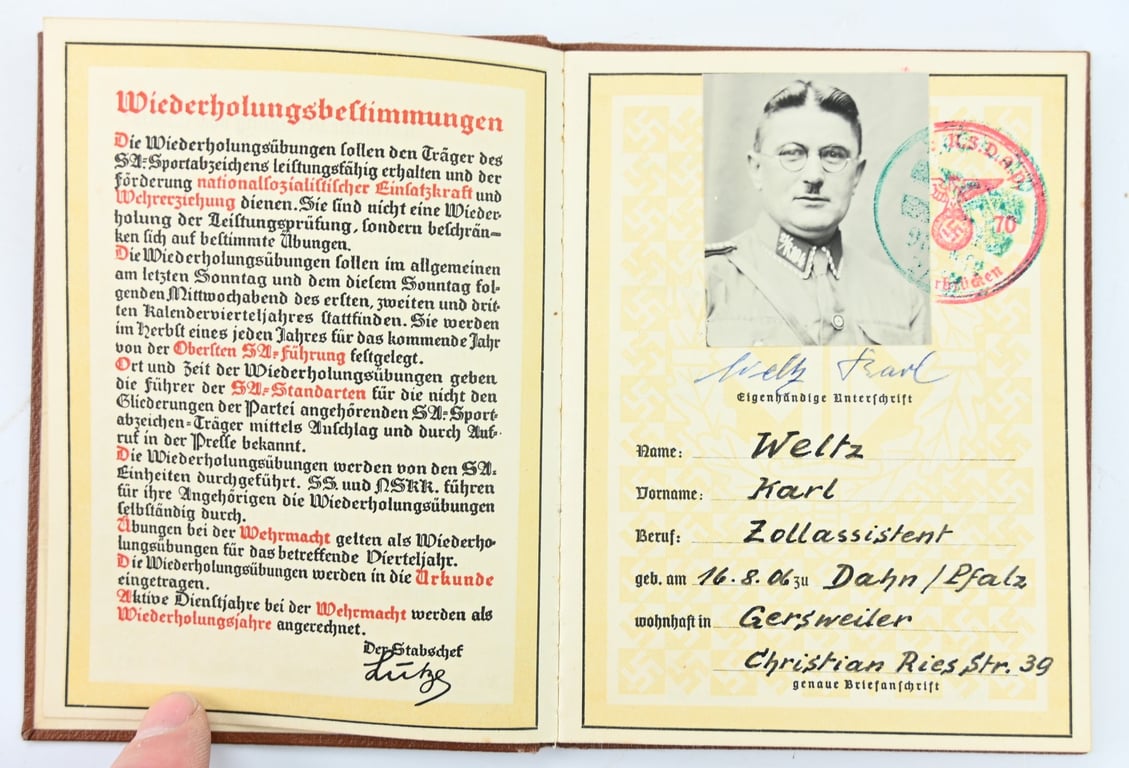 Wiederholungsbestimmungen
Die Wiederholungsübungen sollen den Träger des
SA-Sportabzeichens leistungsfähig erhalten und der
Förderung nationalsozialistischer Einsatzkraft und
Wehrerziehung dienen. Sie sind nicht eine Wieder-
holung der Leistungsprüfung, sondern beschrän-
ken sich auf bestimmte Übungen.
Die Wiederholungsübungen sollen im allgemeinen
am letzten Sonntag und dem diesem Sonntag fol-
genden Mittwochabend des ersten, zweiten und drit-
ten Kalendervierteljahres stattfinden. Sie werden
im Herbst eines jeden Jahres für das kommende Jahr
von der Obersten SA-Führung festgelegt.
Ort und Zeit der Wiederholungsübungen geben
die Führer der SA-Standarten für die nicht den
Gliederungen der Partei angehörenden SA-Sport-
abzeichen-Träger mittels Anschlag und durch Auf-
ruf in der Presse bekannt.
Die Wiederholungsübungen werden von den SA-
Einheiten durchgeführt. SS. und NSKK. führen
für ihre Angehörigen die Wiederholungsübungen
selbständig durch.
Übungen bei der Wehrmacht gelten als Wiederho-
lungsübungen für das betreffende Vierteljahr.
Die Wiederholungsübungen werden in die Urkunde
eingetragen.
Aktive Dienstjahre bei der Wehrmacht werden als
Wiederholungsjahre angerechnet.
Der Stabschef
Lutze
N.S.D.A.P.
70
Weltz Karl
Eigenhändige Unterschrift
Name: Weltz
Vorname: Karl
Beruf: Zollassistent
geb. am 16.8.06 zu Dahn/Pfalz
wohnhaft in Gersweiler
Christian Ries Str. 39
genaue Briefanschrift